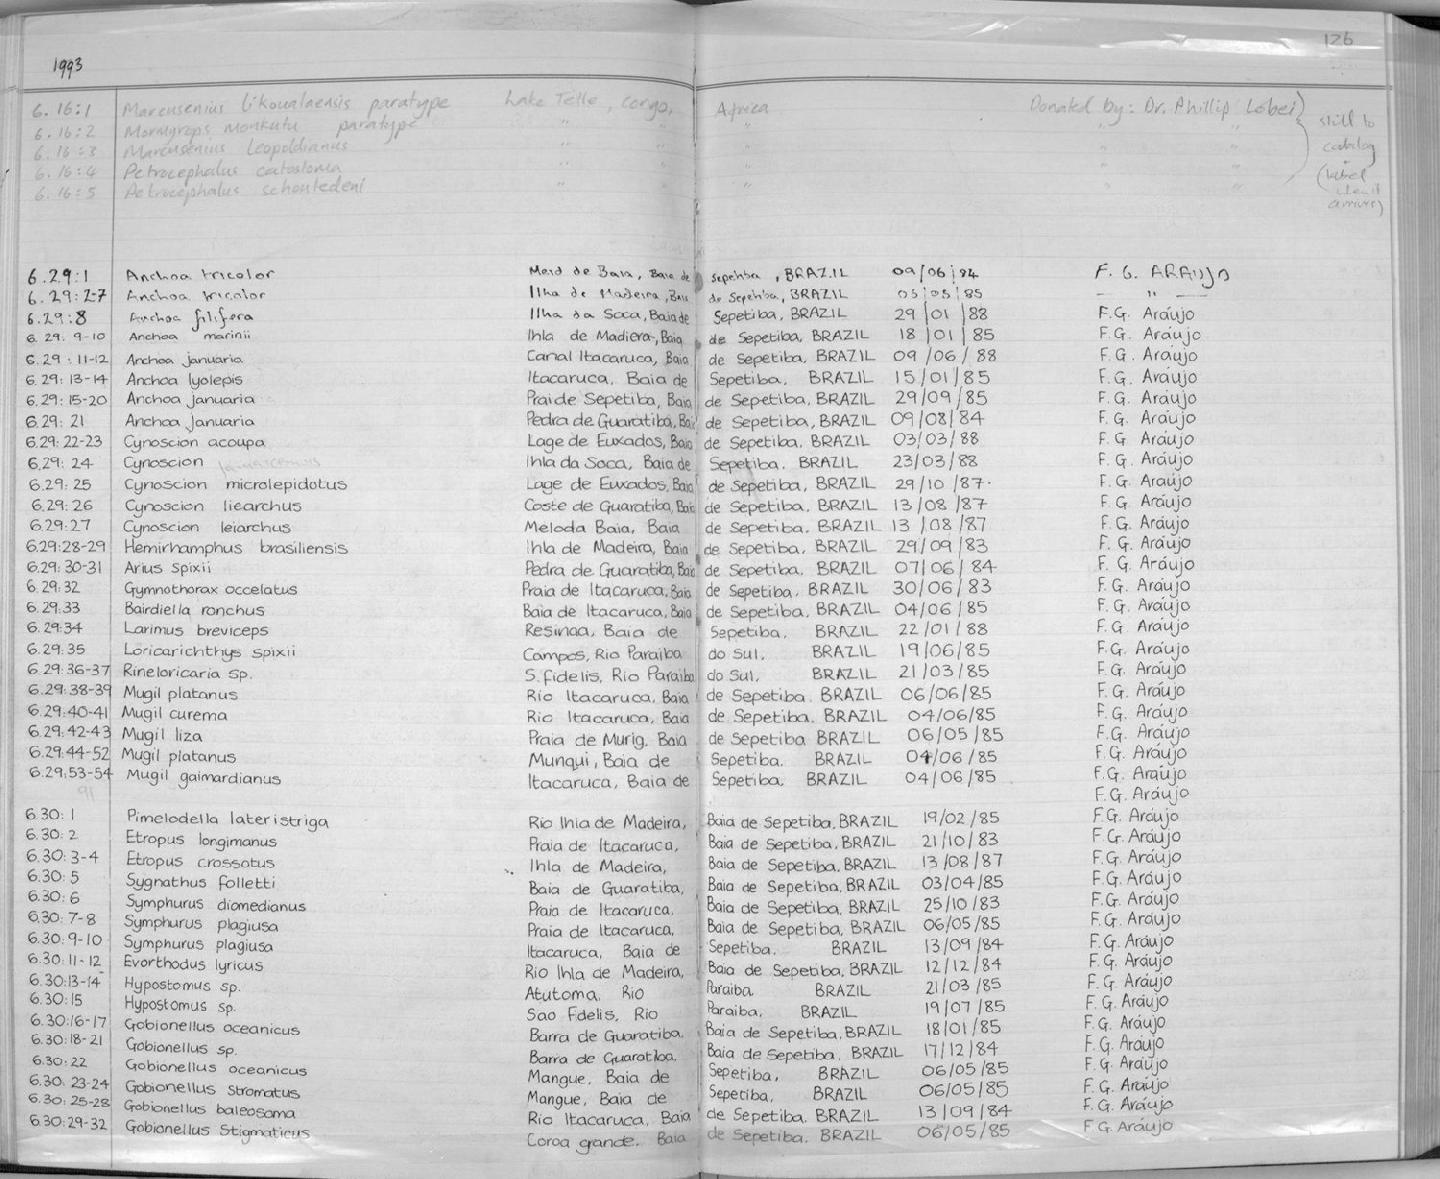 126
1993
6.16:1 Marcusenius likoualaensis paratype Lake Telle, Congo, Africa Donated by: Dr. Phillip Lobel
6.16:2 Mormyrops paratype " " " " still to
6.16:3 Marcusenius Leopoldianus " " " " catalog
6.16:4 Petrocephalus catostoma " " " " (label
6.16:5 Petrocephalus schoutedeni " " " " arrives)
6.29:1 Anchoa tricolor de Baia, Baia de Sepetiba, BRAZIL 09/06/84 F. G. ARAUJO
6.29:2-7 Anchoa tricolor Ilha de Madeira, Baia de Sepetiba, BRAZIL 05/05/85 — " —
6.29:8 Anchoa filifera Ilha da Soca, Baia de Sepetiba, BRAZIL 29/01/88 F.G. Araújo
6.29:9-10 Anchoa marinii Ihla de Madiera, Baia de Sepetiba, BRAZIL 18/01/85 F.G. Araújo
6.29:11-12 Anchoa januaria Canal Itacaruca, Baia de Sepetiba, BRAZIL 09/06/88 F.G. Araújo
6.29:13-14 Anchoa lyolepis Itacaruca, Baia de Sepetiba, BRAZIL 15/01/85 F.G. Araújo
6.29:15-20 Anchoa januaria Praide Sepetiba, Baia de Sepetiba, BRAZIL 29/09/85 F.G. Araújo
6.29:21 Anchoa januaria Pedra de Guaratiba, Bai de Sepetiba, BRAZIL 09/08/84 F.G. Araújo
6.29:22-23 Cynoscion acoupa Lage de Euxados, Baia de Sepetiba, BRAZIL 03/03/88 F.G. Araújo
6.29:24 Cynoscion jamaicensis Ihla da Soca, Baia de Sepetiba. BRAZIL 23/03/88 F.G. Araújo
6.29:25 Cynoscion microlepidotus Lage de Euxados, Baia de Sepetiba, BRAZIL 29/10/87. F.G. Araújo
6.29:26 Cynoscion liearchus Coste de Guaratiba, Baia de Sepetiba, BRAZIL 13/08/87 F.G. Araújo
6.29:27 Cynoscion leiarchus Meloda Baia, Baia de Sepetiba, BRAZIL 13/08/87 F.G. Araújo
6.29:28-29 Hemirhamphus brasiliensis Ihla de Madeira, Baia de Sepetiba, BRAZIL 29/09/83 F.G. Araújo
6.29:30-31 Arius spixii Pedra de Guaratiba, Baia de Sepetiba, BRAZIL 07/06/84 F.G. Araújo
6.29:32 Gymnothorax occelatus Praia de Itacaruca, Baia de Sepetiba, BRAZIL 30/06/83 F.G. Araújo
6.29:33 Bairdiella ronchus Baia de Itacaruca, Baia de Sepetiba, BRAZIL 04/06/85 F.G. Araújo
6.29:34 Larimus breviceps Resinga, Baia de Sepetiba, BRAZIL 22/01/88 F.G. Araújo
6.29:35 Loricarichthys spixii Campos, Rio Paraiba do Sul, BRAZIL 19/06/85 F.G. Araújo
6.29:36-37 Rineloricaria sp. S.fidelis, Rio Paraiba do Sul, BRAZIL 21/03/85 F.G. Araújo
6.29:38-39 Mugil platanus Rio Itacaruca, Baia de Sepetiba. BRAZIL 06/06/85 F.G. Araújo
6.29:40-41 Mugil curema Rio Itacaruca, Baia de Sepetiba. BRAZIL 04/06/85 F.G. Araújo
6.29:42-43 Mugil liza Praia de Murig, Baia de Sepetiba BRAZIL 06/05/85 F.G. Araújo
6.29:44-52 Mugil platanus Munqui, Baia de Sepetiba. BRAZIL 04/06/85 F.G. Araújo
6.29:53-54 Mugil gaimardianus Itacaruca, Baia de Sepetiba, BRAZIL 04/06/85 F.G. Araújo
91 F.G. Araújo
6.30:1 Pimelodella lateristriga Rio Ihla de Madeira, Baia de Sepetiba, BRAZIL 19/02/85 F.G. Araújo
6.30:2 Etropus longimanus Praia de Itacaruca, Baia de Sepetiba, BRAZIL 21/10/83 F.G. Araújo
6.30:3-4 Etropus crossotus Ihla de Madeira, Baia de Sepetiba, BRAZIL 13/08/87 F.G. Araújo
6.30:5 Sygnathus folletti Baia de Guaratiba, Baia de Sepetiba, BRAZIL 03/04/85 F.G. Araújo
6.30:6 Symphurus diomedianus Praia de Itacaruca, Baia de Sepetiba, BRAZIL 25/10/83 F.G. Araújo
6.30:7-8 Symphurus plagiusa Praia de Itacaruca, Baia de Sepetiba, BRAZIL 06/05/85 F.G. Araújo
6.30:9-10 Symphurus plagiusa Itacaruca, Baia de Sepetiba. BRAZIL 13/09/84 F.G. Araújo
6.30:11-12 Evorthodus lyricus Rio Ihla de Madeira, Baia de Sepetiba, BRAZIL 12/12/84 F.G. Araújo
6.30:13-14 Hypostomus sp. Atutoma, Rio Paraiba BRAZIL 21/03/85 F.G. Araújo
6.30:15 Hypostomus sp. Sao Fdelis, Rio Paraiba, BRAZIL 19/07/85 F.G. Araújo
6.30:16-17 Gobionellus oceanicus Barra de Guaratiba. Baia de Sepetiba, BRAZIL 18/01/85 F.G. Araújo
6.30:18-21 Gobionellus sp. Barra de Guaratiba. Baia de Sepetiba, BRAZIL 17/12/84 F.G. Araújo
6.30:22 Gobionellus oceanicus Mangue, Baia de Sepetiba, BRAZIL 06/05/85 F.G. Araújo
6.30:23-24 Gobionellus Stromatus Mangue, Baia de Sepetiba, BRAZIL 06/05/85 F.G. Araújo
6.30:25-28 Gobionellus baleosoma Rio Itacaruca, Baia de Sepetiba. BRAZIL 13/09/84 F.G. Araújo
6.30:29-32 Gobionellus Stigmaticus Coroa grande. Baia de Sepetiba. BRAZIL 06/05/85 F.G. Araújo